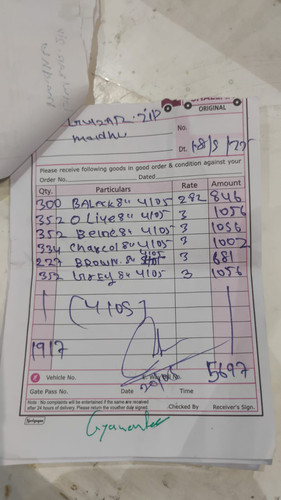 ORIGINAL
No.
madhu
Dt. 18/9/22
Please receive following goods in good order & condition against your
Order No. Dated
Qty. Particulars Rate Amount
300 BALACK 8" 4105 282 846
352 O Live 8" 4105 3 1056
352 Beine 8" 4105 3 1056
334 Charcol 8" 4105 3 1002
227 BROWN 8" 4105 3 681
352 GREY 8" 4105 3 1056
(4105)
1917
5697
Vehicle No.
Gate Pass No. Date Time
Note - No complaints will be entertained if the same are received
after 24 hours of delivery. Please return the voucher duly signed.
Checked By Receiver's Sign.